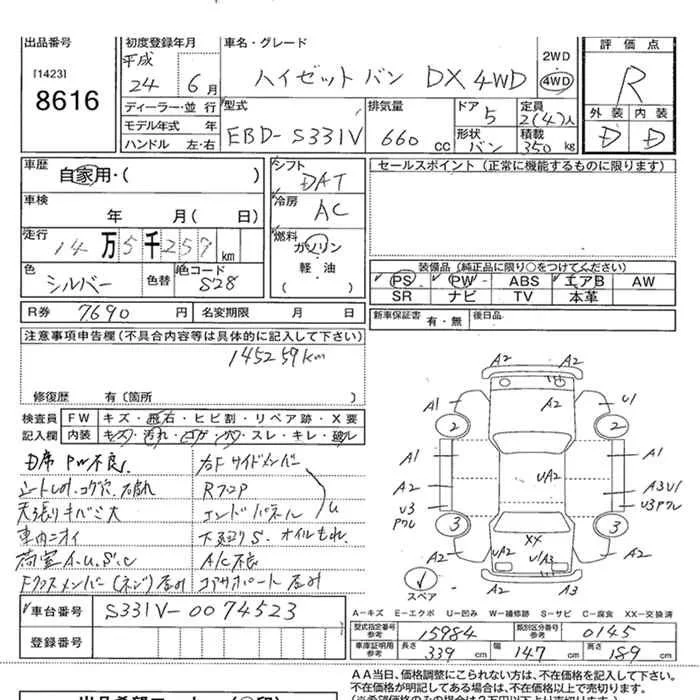 出品番号 初度登録年月 車名・グレード 評価点
[1423]
8616
平成
24年 6月
ハイゼットバン DX 4WD
2WD
4WD
R
外装 内装
D D
ディーラー・並行 型式 排気量 ドア 定員
5 2(4)人
モデル年式 年
EBD-S331V 660cc
ハンドル 左・右
形状 バン 積載 350kg
車歴
自家用・( )
シフト
DAT
セールスポイント(正常に機能するものに限ります)
車検
年 月( 日)
冷房
AC
走行
14万5千259km
燃料
ガソリン
軽油
( )
色 シルバー 色替 色コード S28
装備品(純正品に限り○をつけてください)
PS PW ABS エアB AW
SR ナビ TV 本革
R券 7690円 名変期限 月 日
新車保証書 有・無 後日品
注意事項申告欄(不具合内容等は具体的に記入して下さい)
145259km
修復歴 有〔箇所 〕
検査員 FW キズ・飛石・ヒビ割・リペア跡・X要
記入欄 内装 キズ・汚れ・コゲ・穴・スレ・キレ・破ル
PW不良 右Fサイドメンバー
シートしわ.コゲ穴. R
天張りキバミ大 エンドパネル U
車内ニオイ 下廻りS.オイルもれ.
荷室A.U.S.C A/C不良
Fクロスメンバー(ネジ)歪み コアサポート歪み
A2 A2
A1 A2 U1
2 2
A1 A1
UA2
A2 A3U1
U3 U3アル
アル
3 XX 3
A2 UA2 U1A3 A2
スペア A2 A3
A−キズ E−エクボ U−凹み W−補修跡 S−サビ C−腐食 XX−交換済
車台番号 S331V-0074523
登録番号
型式指定番号 参考 15984 類別区分番号 参考 0145
車庫証明用 参考 長さ 339cm 幅 147cm 高さ 189cm
AA当日、価格調整にこられない方は、不在価格を記入して下さい。
不在価格が明記してある車は、不在価格以上で売切ります。